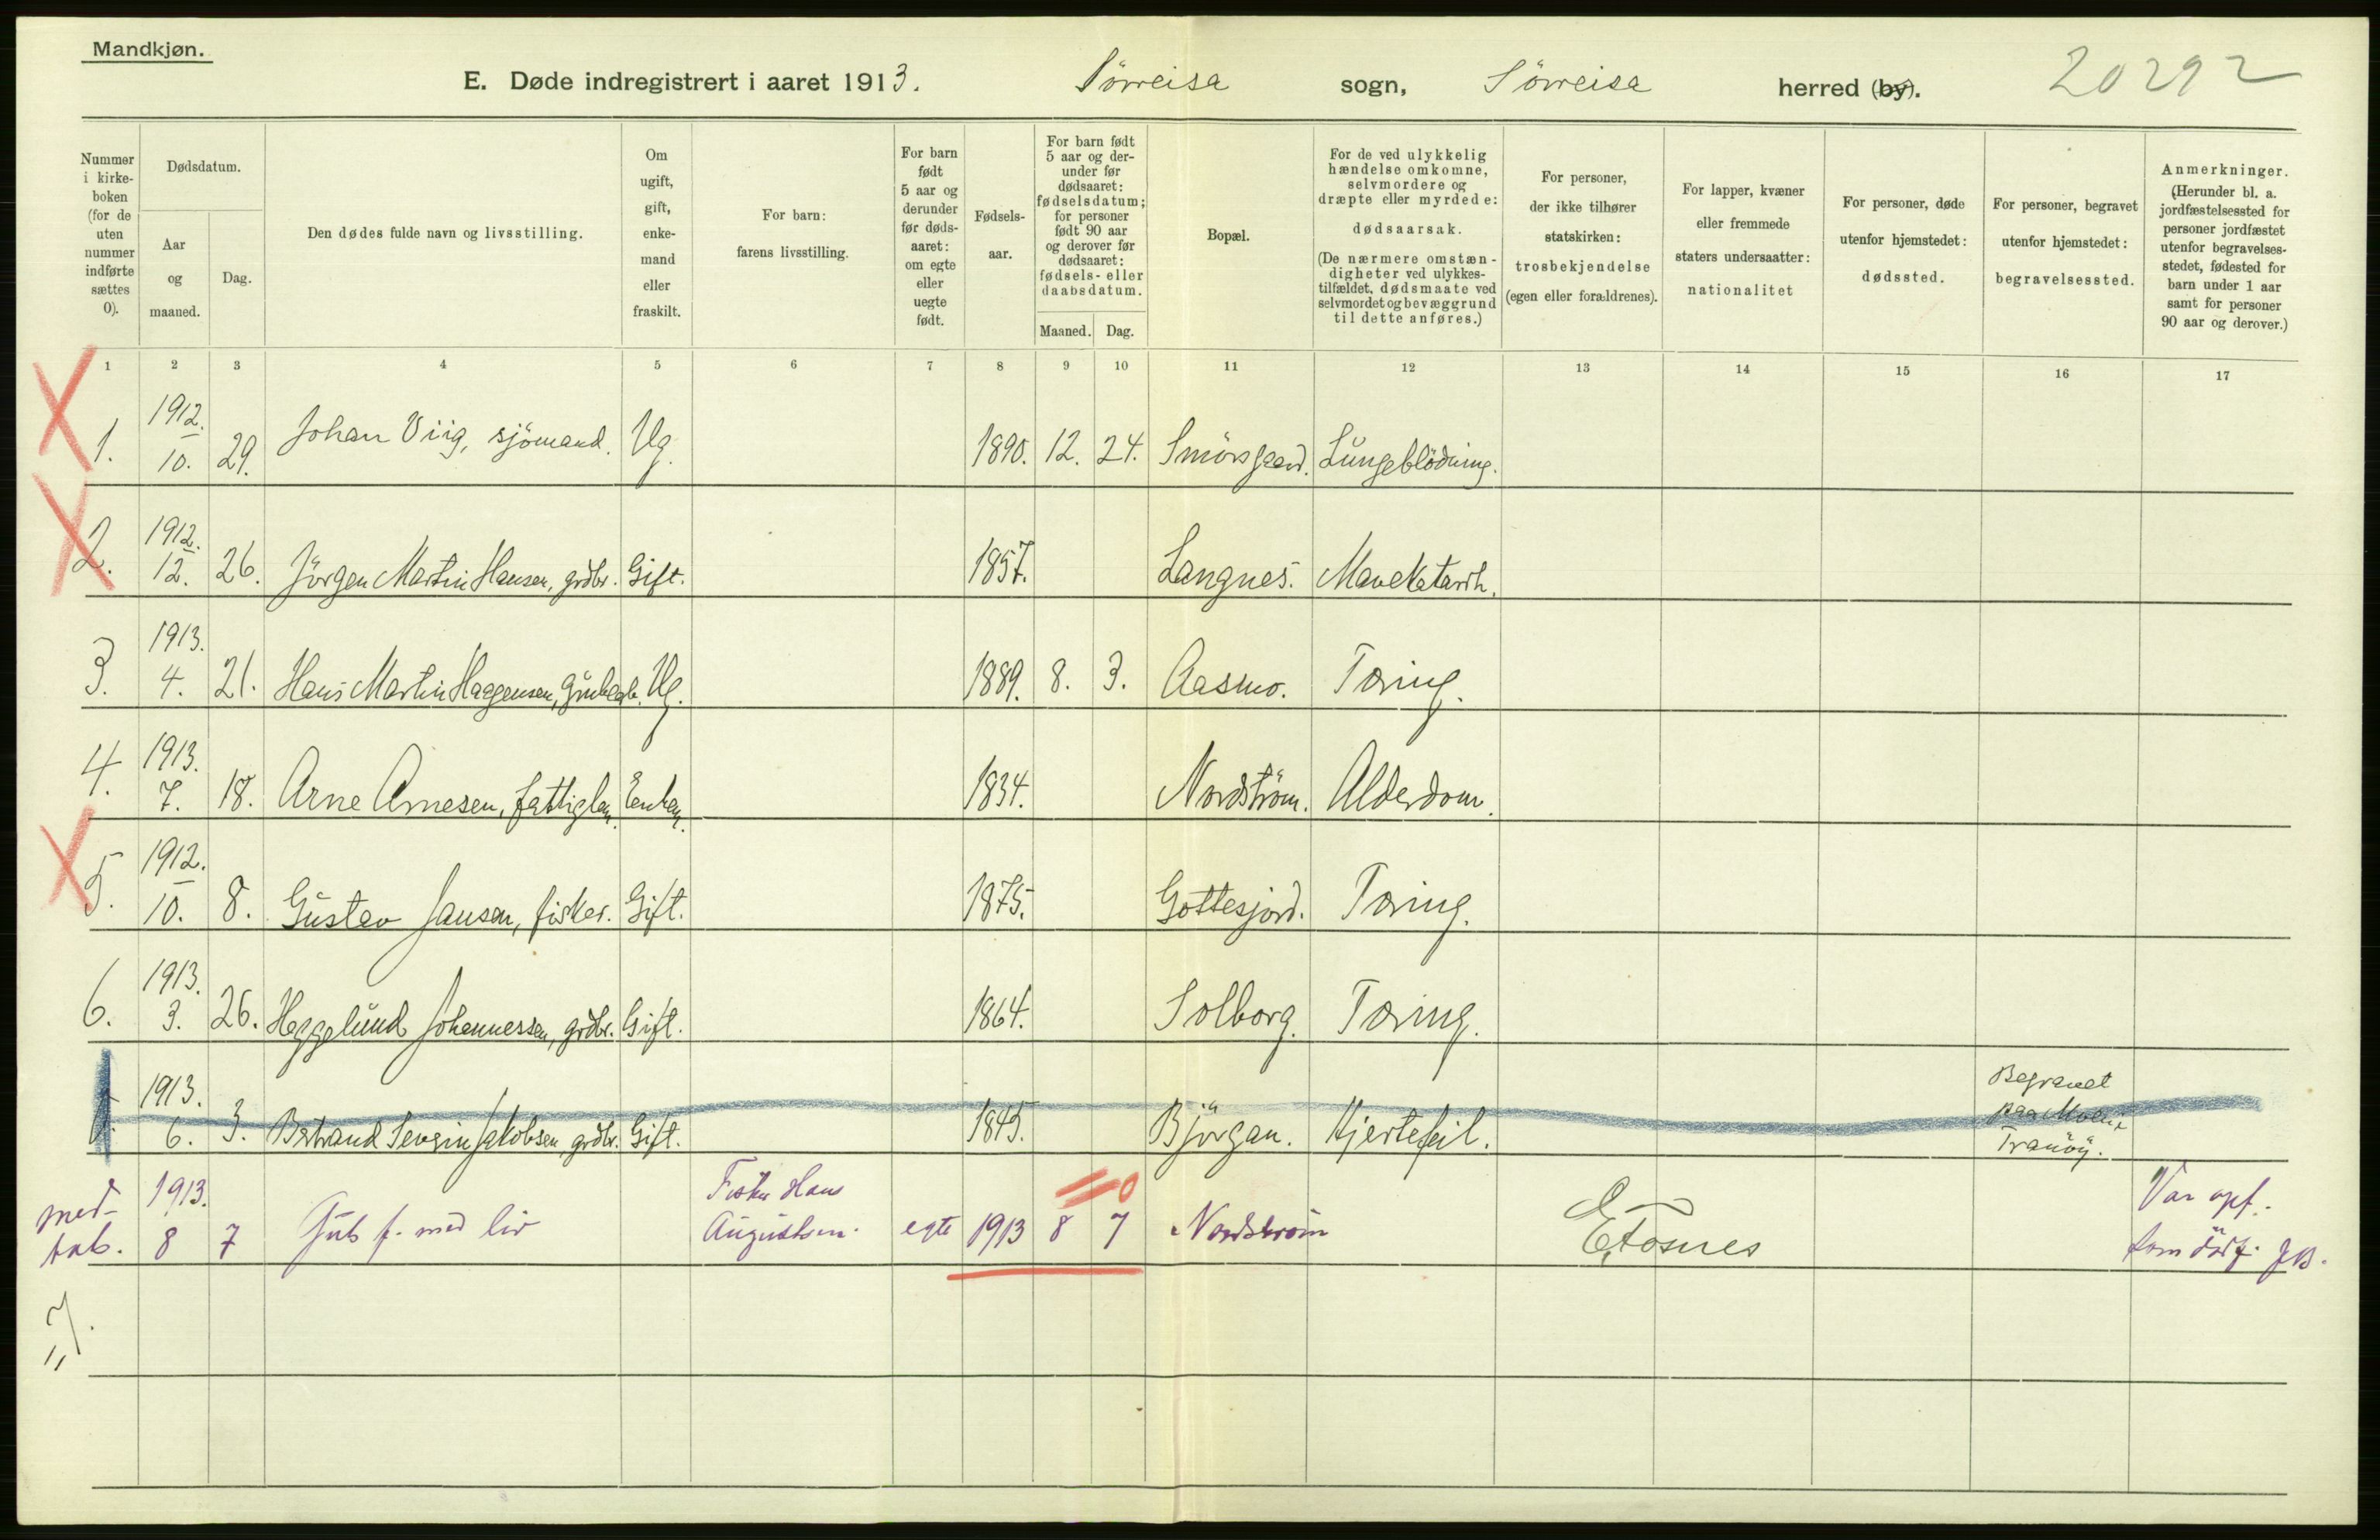 Mandkjøn.
E. Døde indregistrert i aaret 1913. Sørreisa sogn, Sørreisa herred (by). 20292
Nummer i kirkeboken (for de uten nummer indførte sættes 0).
Dødsdatum.
Aar og maaned.
Dag.
Den dødes fulde navn og livsstilling.
Om ugift, gift, enkemand eller fraskilt.
For barn: farens livsstilling.
For barn født 5 aar og derunder før dødsaaret: om egte eller uegte født.
Fødselsaar.
For barn født 5 aar og derunder før dødsaaret: fødselsdatum; for personer født 90 aar og derover før dødsaaret: fødsels- eller daabsdatum.
Maaned. Dag.
Bopæl.
For de ved ulykkelig hændelse omkomne, selvmordere og dræpte eller myrdede: dødsaarsak.
(De nærmere omstændigheter ved ulykkestilfældet, dødsmaate ved selvmordet og bevæggrund til dette anføres.)
For personer, der ikke tilhører statskirken: trosbekjendelse (egen eller forældrenes).
For lapper, kvæner eller fremmede staters undersaatter: nationalitet
For personer, døde utenfor hjemstedet: dødssted.
For personer, begravet utenfor hjemstedet: begravelsessted.
Anmerkninger. (Herunder bl. a. jordfæstelsessted for personer jordfæstet utenfor begravelsesstedet, fødested for barn under 1 aar samt for personer 90 aar og derover.)
1 2 3 4 5 6 7 8 9 10 11 12 13 14 15 16 17
1. 1912. 10. 29. Johan Viig, sjömand. Ug. 1890. 12. 24. Smörsgaard. Lungeblödning.
2. 1912. 12. 26. Jörgen Martin Hansen, grdbr. Gift. 1857. Langnes. Mavekatarrh.
3. 1913. 4. 21. Hans Martin Haagensen, Ug. 1889. 8. 3. Aasmo. Tæring.
4. 1913. 7. 18. Arne Arnesen, fattiglem. Enkem. 1834. Nordström. Alderdom.
5. 1912. 10. 8. Gustav Jansen, fisker. Gift. 1875. Gottesjord. Tæring.
6. 1913. 3. 26. Heggelund Johannessen, grdbr. Gift. 1864. Solborg. Tæring.
1913. 6. 3. Bertrand Severin Jakobsen, grdbr. Gift. 1845. Björgan. Hjertefeil. Begravet paa Moen i Tranöy.
med- 1913. Fisker Hans Var opf.
tab. 8 7 Gut f. med liv Augustsen. egte 1913 8 7 0 Nordstrøm som JB.
7.